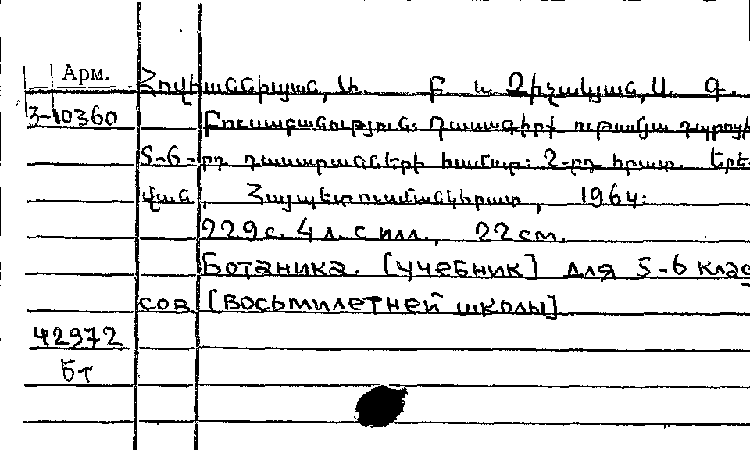 Арм.
Հովհաննիսյան, Ա. Բ և Չիչակյան, Ա. Գ.
3-10360
Բուսաբանություն: Դասագիրք ութամյա դպրոցի
5-6-րդ դասարանների համար: 2-րդ հրատ. Երե-
վան, Հայպետուսմանկհրատ, 1964:
229 с. 4 л. с илл., 22 см.
Ботаника. [учебник] для 5-6 клас
сов [восьмилетней школы]
42972
Бт